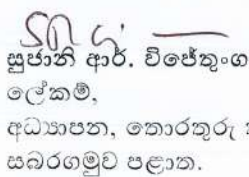 සුජානි ආර්. විජේතුංග
ලේකම්,
අධ්‍යාපන, තොරතුරු
සබරගමුව පළාත.